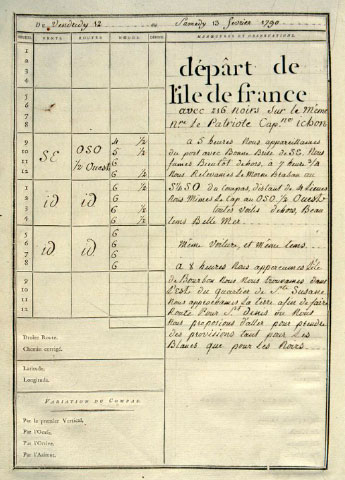 Du Vendredy 12 Samedy 13 février 1790
HEURES. VENTS. ROUTES. NŒUDS. MANŒUVRES ET OBSERVATIONS.
1
2
3
4
départ de
l'ile de france
5
6
7
8
avec 216 noirs sur le même
nre le Patriote Cap.ne ichon
9
10
11
12
SE OSO ½ Ouest
4 ½
5 ½
6 ½
à 5 heures nous appareillames
du port avec Bonne Brise de SE. Nous
fumes Bientôt dehors, à 7 heures
nous Relevames le Morne Braban au
1
2
3
4
id id
6 ½
6
6 ½
6
S¼SO du Compas, distant de 4 lieues
nous mimes le Cap au OSO ½ Ouest
toutes voiles dehors, Beau
tems Belle Mer
5
6
7
8
id id
6
6
6
6
Même Voilure, et même tems.
9
10
11
12
à 8 heures nous apperçumes l'ile
de Bourbon nous nous trouvames dans
l'est du quartier de Ste Susane
nous approchames la terre afin de faire
Route pour St Denis où nous
nous proposions d'aller pour prendre
des provisions tant pour les
Blancs que pour les Noirs
Droite Route.
Chemin corrigé.
Latitude.
Longitude.
VARIATION DU COMPAS.
Par le premier Vertical.
Par l'Occase.
Par l'Ortive.
Par l'Azimut.